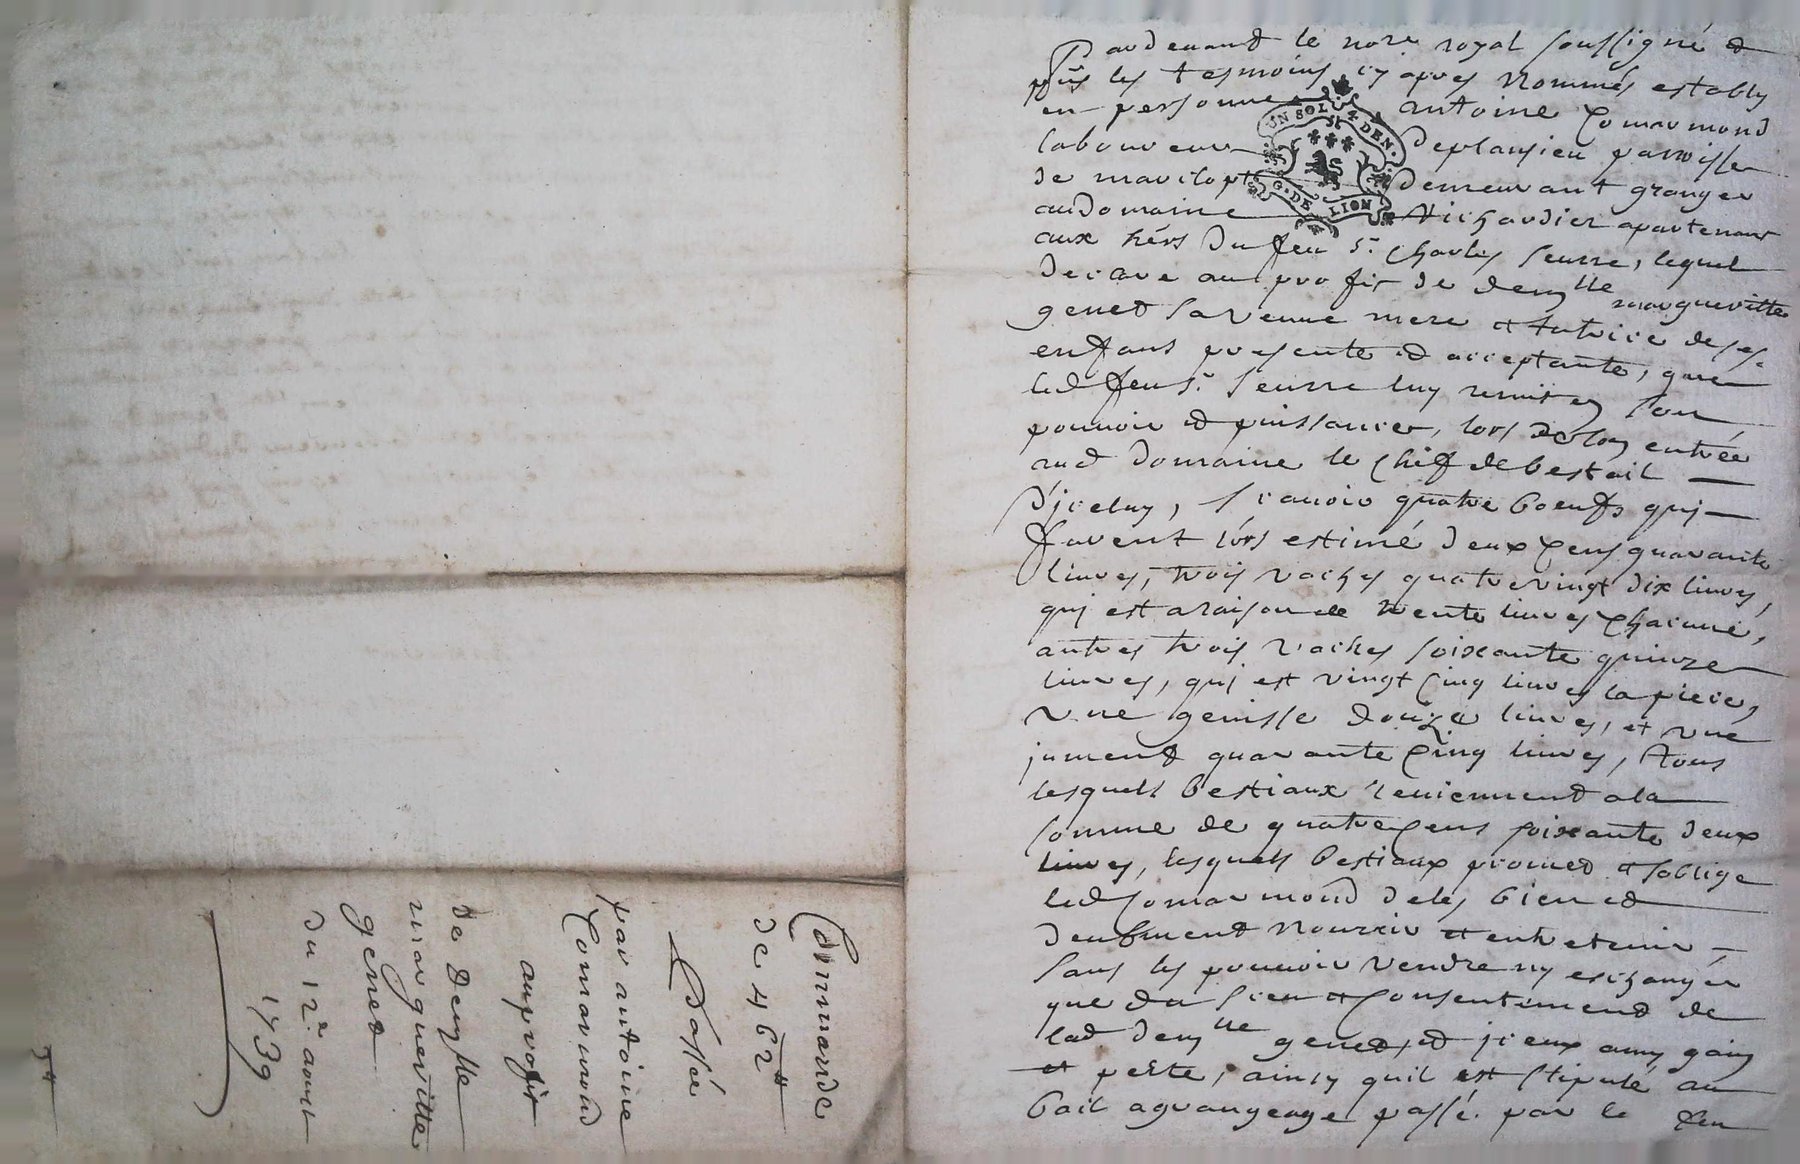 Pardevant le nore royal soussigné et
pñs les tesmoins cy apres nommés estably
en personne antoine Comarmond
laboureur deplansieu parroisse
de demeurant granger
audomaine Richardier apartenant
aux hérs du feu Sr. Charles Seurre, lequel
declare au profit de demlle margueritte
genet sa veuve mere et tutrice de ses
enfans presente et acceptante, que
led feu Sr. Seurre luy remit en son
pouvoir et puissance, lors deson entrée
aud domaine le chef de bestail
d'jceluy, scavoir quatre boeufs quj
furent lors estimé deux cens quarante
livres, trois vaches quatrevingt dix livres,
quj est araison de trente livres chacune,
autres trois vaches soixante quinze
livres, quj est vingt cinq livres la piece,
une genisse douze livres, et une
jument quarante cinq livres, tous
lesquels bestiaux reviennent ala
somme de quatre cens soixante deux
livres, lesquels bestiaux promet et soblige
led Comarmond deles bien et
deubment nourrir et entretenir
sans les pouvoir vendre ny eschanger
que du sceu et consentement de
lad demlle genet, et jceux amy gain
et perte, ainsy quil est stipulé au
bail agrangeage passé par le feu
UN SOL 4 DEN.
G. DE LION
Commande
de 462#
Passée
par antoine
Comarmond
auprofit
de Demlle
margueritte
genet
du 12e. aoust
1739